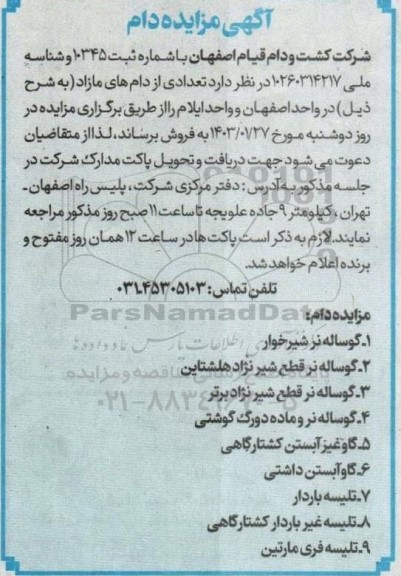 آگهی مزایده دام
شرکت کشت و دام قیام اصفهان با شماره ثبت ۱۰۳۴۵ و شناسه
ملی ۱۰۲۶۰۳۱۴۲۱۷ در نظر دارد تعدادی از دام های مازاد (به شرح
ذیل) در واحد اصفهان و واحد ایلام را از طریق برگزاری مزایده در
روز دوشنبه مورخ ۱۴۰۳/۰۱/۲۷ به فروش برساند، لذا از متقاضیان
دعوت می شود جهت دریافت و تحویل پاکت مدارک شرکت در
جلسه مذکور به آدرس: دفتر مرکزی شرکت، پلیس راه اصفهان ـ
تهران، کیلومتر ۹ جاده علویجه تا ساعت ۱۱ صبح روز مذکور مراجعه
نمایند. لازم به ذکر است پاکت ها در ساعت ۱۲ همان روز مفتوح و
برنده اعلام خواهد شد.
تلفن تماس: ۰۳۱-۴۵۳۰۵۱۰۳
ParsNamadData
مزایده دام:
۱ـ گوساله نر شیرخوار
۲ـ گوساله نر قطع شیر نژاد هلشتاین
۳ـ گوساله نر قطع شیر نژاد برتر
۴ـ گوساله نر و ماده دورگ گوشتی
۵ـ گاو غیر آبستن کشتارگاهی
۶ـ گاو آبستن داشتی
۷ـ تلیسه باردار
۸ـ تلیسه غیر باردار کشتارگاهی
۹ـ تلیسه فری مارتین